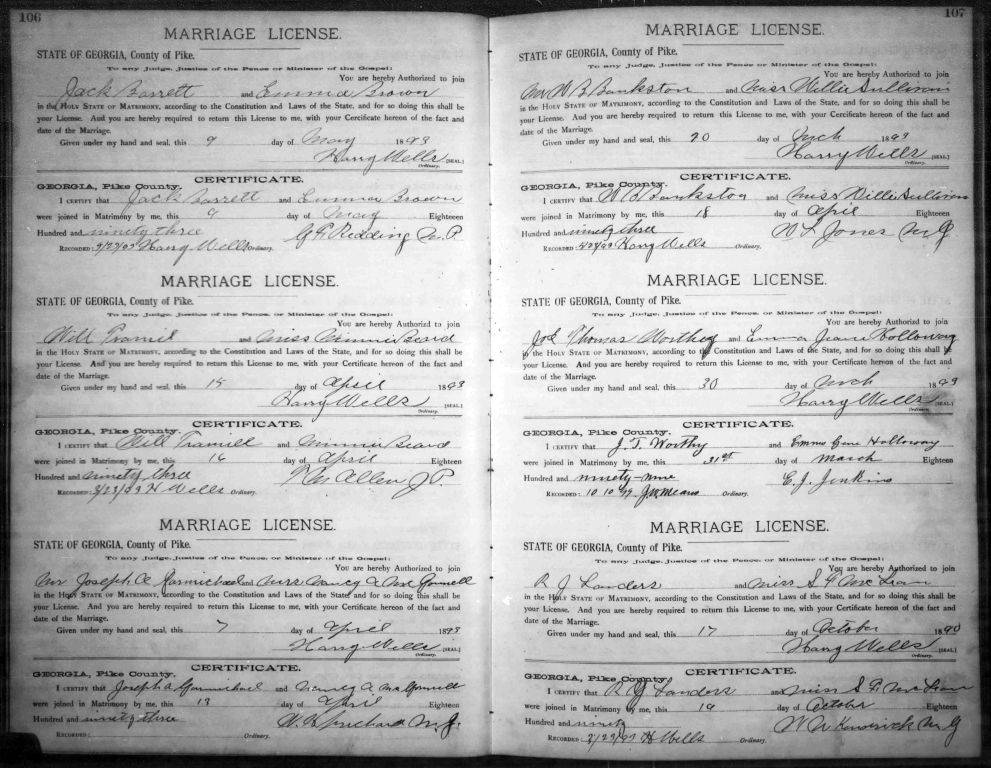 106
MARRIAGE LICENSE.
STATE OF GEORGIA, County of Pike.
To any Judge, Justice of the Peace or Minister of the Gospel:
You are hereby Authorized to join
Jack Barrett and Emma Brown
in the HOLY STATE OF MATRIMONY, according to the Constitution and Laws of the State, and for so doing this shall be
your License. And you are hereby required to return this License to me, with your Certificate hereon of the fact and
date of the Marriage.
Given under my hand and seal, this 9 day of May 1893
Harry Wells [SEAL.]
Ordinary.
CERTIFICATE.
GEORGIA, Pike County.
I CERTIFY that Jack Barrett and Emma Brown
were joined in Matrimony by me, this 9 day of May Eighteen
Hundred and ninety three G F Redding M.P.
RECORDED Harry Wells Ordinary.
MARRIAGE LICENSE.
STATE OF GEORGIA, County of Pike.
To any Judge, Justice of the Peace, or Minister of the Gospel:
You are hereby Authorized to join
Will and Miss Minnie Beard
in the HOLY STATE OF MATRIMONY, according to the Constitution and Laws of the State, and for so doing this shall be
your License. And you are hereby required to return this License to me, with your Certificate hereon of the fact and
date of the Marriage.
Given under my hand and seal, this 15 day of April 1893
Harry Wells [SEAL.]
Ordinary.
CERTIFICATE.
GEORGIA, Pike County.
I CERTIFY that Will and Minnie Beard
were joined in Matrimony by me, this 16 day of April Eighteen
Hundred and ninety three Allen J P
RECORDED H Wells Ordinary.
MARRIAGE LICENSE.
STATE OF GEORGIA, County of Pike.
To any Judge, Justice of the Peace, or Minister of the Gospel:
You are hereby Authorized to join
Mr Joseph A and Miss Nancy A
in the HOLY STATE OF MATRIMONY, according to the Constitution and Laws of the State, and for so doing this shall be
your License. And you are hereby required to return this License to me, with your Certificate hereon of the fact and
date of the Marriage.
Given under my hand and seal, this 7 day of April 1893
Harry Wells [SEAL.]
Ordinary.
CERTIFICATE.
GEORGIA, Pike County.
I CERTIFY that Joseph A and Nancy A
were joined in Matrimony by me, this 13 day of April Eighteen
Hundred and ninety three M.G.
RECORDED: Ordinary.
107
MARRIAGE LICENSE.
STATE OF GEORGIA, County of Pike.
To any Judge, Justice of the Peace or Minister of the Gospel:
You are hereby Authorized to join
Mr W B Bankston and Miss Willie Sullivan
in the HOLY STATE OF MATRIMONY, according to the Constitution and Laws of the State, and for so doing this shall be
your License. And you are hereby required to return this License to me, with your Certificate hereon of the fact and
date of the Marriage.
Given under my hand and seal, this 20 day of Mch 1893
Harry Wells [SEAL.]
Ordinary.
CERTIFICATE.
GEORGIA, Pike County.
I CERTIFY that W B Bankston and Miss Willie Sullivan
were joined in Matrimony by me, this 18 day of April Eighteen
Hundred and ninety three W L Jones M G
RECORDED Harry Wells Ordinary.
MARRIAGE LICENSE.
STATE OF GEORGIA, County of Pike.
To any Judge, Justice of the Peace, or Minister of the Gospel:
You are hereby Authorized to join
Thomas Worthy and Emma Holloway
in the HOLY STATE OF MATRIMONY, according to the Constitution and Laws of the State, and for so doing this shall be
your License. And you are hereby required to return this License to me, with your Certificate hereon of the fact and
date of the Marriage.
Given under my hand and seal, this 30 day of Mch 1893
Harry Wells [SEAL.]
Ordinary.
CERTIFICATE.
GEORGIA, Pike County.
I CERTIFY that J. T. Worthy and Emma Gene Holloway
were joined in Matrimony by me, this 31st day of March Eighteen
Hundred and ninety-nine E. J. Jenkins
RECORDED: 10 10 99 J W Means Ordinary.
MARRIAGE LICENSE.
STATE OF GEORGIA, County of Pike.
To any Judge, Justice of the Peace, or Minister of the Gospel:
You are hereby Authorized to join
R J Landers and Miss S F McLean
in the HOLY STATE OF MATRIMONY, according to the Constitution and Laws of the State, and for so doing this shall be
your License. And you are hereby required to return this License to me, with your Certificate hereon of the fact and
date of the Marriage.
Given under my hand and seal, this 17 day of October 1890
Harry Wells [SEAL.]
Ordinary.
CERTIFICATE.
GEORGIA, Pike County.
I CERTIFY that R J Landers and Miss S F McLean
were joined in Matrimony by me, this 19 day of October Eighteen
Hundred and ninety M G
RECORDED H Wells Ordinary.